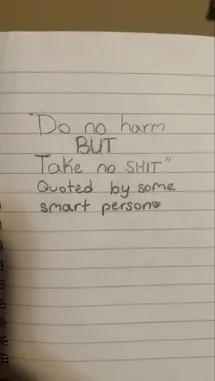 "Do no harm
BUT
Take no SHIT"
Quoted by some
smart person